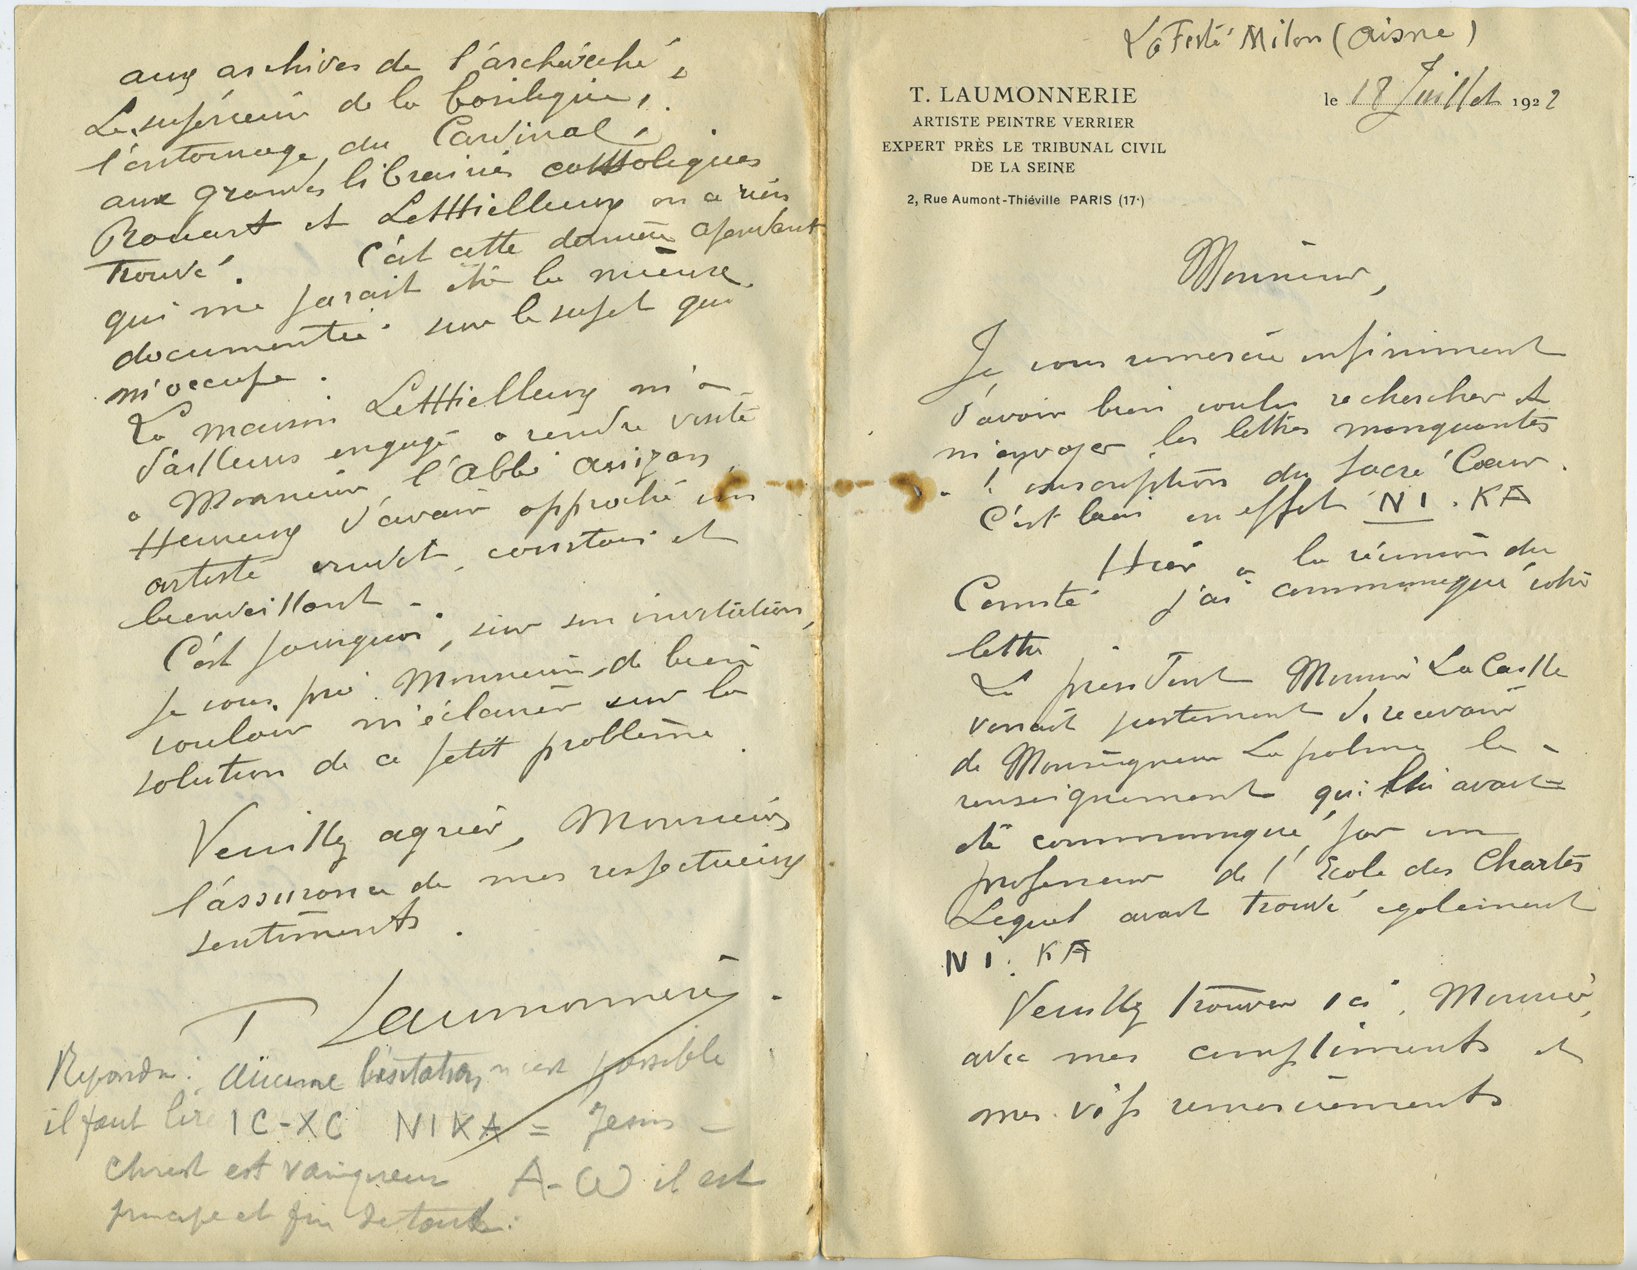 aux archives de l'archevêché,
Le supérieur de la basilique,
l'entourage du Cardinal,
aux grandes librairies catholiques
Rouart et Lethielleux on a rien
trouvé. C'est cette dernière cependant
qui me parait être la mieux
documentée sur le sujet qui
m'occupe.
La maison Lethielleux m'a
d'ailleurs engagé a rendre visite
a Monsieur l'Abbé
Heureux d'avoir approché un
artiste érudit, courtois et
bienveillant -
C'est pourquoi, sur son invitation,
je vous prie Monsieur, de bien
vouloir m'éclairer sur la
solution de ce petit problème.
Veuillez agréer, Monsieur
l'assurance de mes respectueux
sentiments.
T Laumonnerie.
Répondu: Aucune hésitation n'est possible
il faut lire IC-XC NIKA = Jesus -
Christ est vainqueur A-ω il est
principe et fin de tout.
La Ferté Milon (Aisne)
T. LAUMONNERIE
ARTISTE PEINTRE VERRIER
EXPERT PRÈS LE TRIBUNAL CIVIL
DE LA SEINE
2, Rue Aumont-Thiéville PARIS (17e)
le 18 Juillet 1922
Monsieur,
Je vous remercie infiniment
d'avoir bien voulu rechercher et
m'envoyer les lettres manquantes
a l'inscription du Sacré Cœur.
C'est bien en effet NI.KA
Hier a la réunion du
Comité j'ai communiqué votre
lettre
Le président Monsieur Lacaille
venait justement de recevoir
de Monseigneur Lapalme le
renseignement qui lui avait
été communiqué par un
professeur de l'Ecole des Chartes
Lequel avait trouvé egalement
NI.KA
Veuillez trouver ici, Monsieur,
avec mes compliments et
mes vifs remerciements